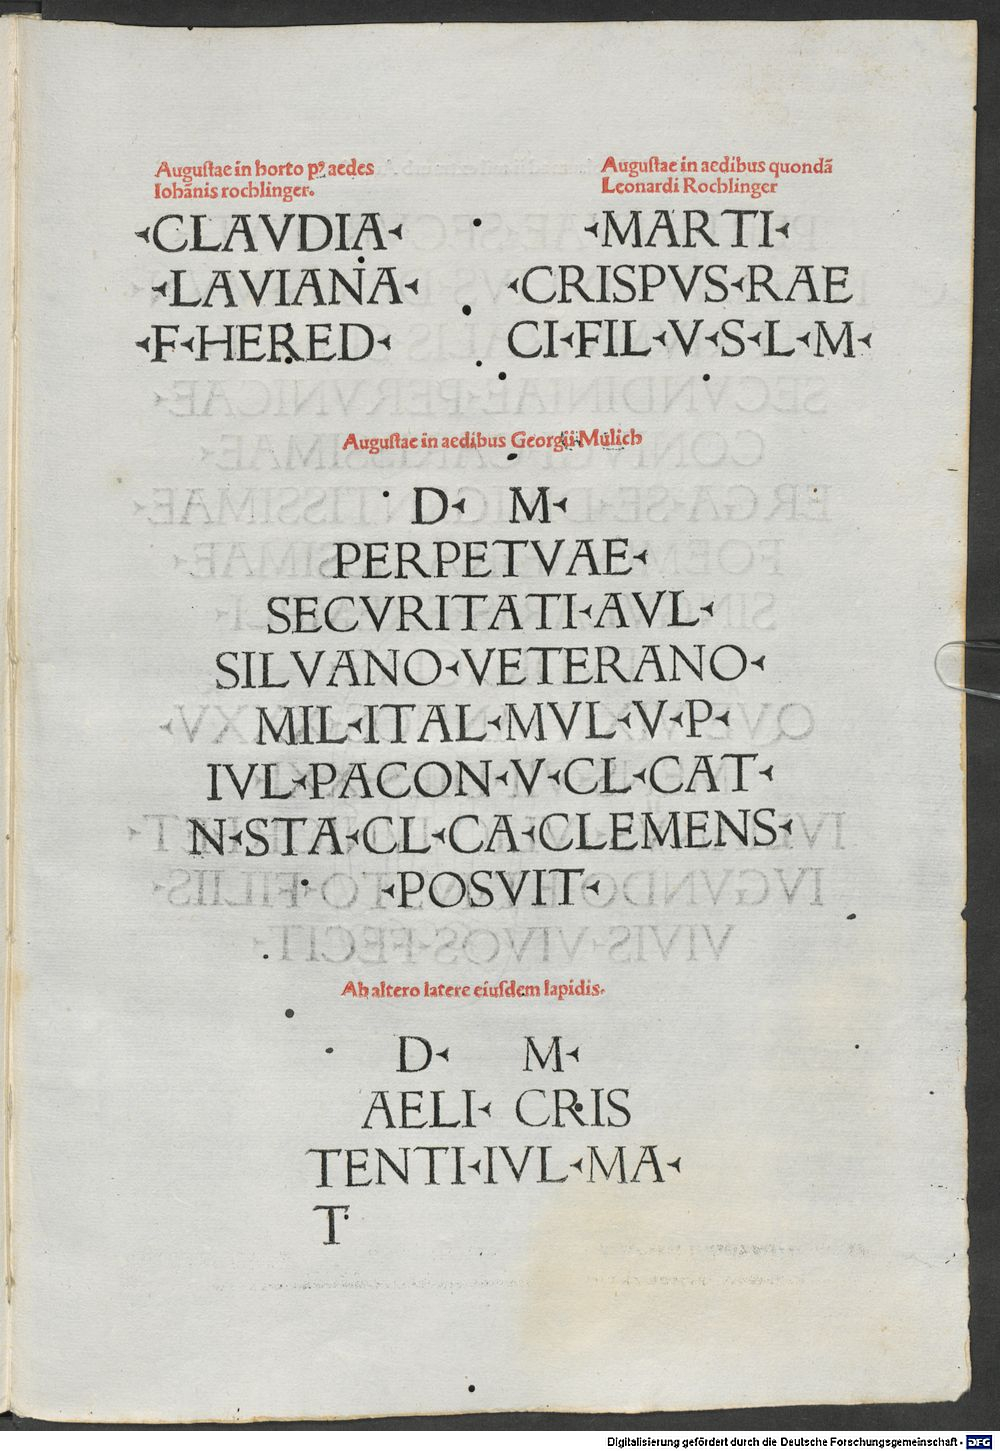 Auguſtae in horto pꝰ aedes
Iohānis rochlinger.
‹CLAVDIA‹
‹LAVIANA‹
‹F‹HERED‹
Auguſtae in aedibus quondā
Leonardi Rochlinger
‹MARTI‹
‹CRISPVS‹RAE
CI‹FIL‹V‹S‹L‹M‹
Auguſtae in aedibus Georgii Mulich
D‹ M‹
PERPETVAE‹
SECVRITATI‹AVL‹
SILVANO‹VETERANO‹
MIL‹ITAL‹MVL‹V‹P‹
IVL‹PACON‹V‹CL‹CAT‹
N‹STA‹CL‹CA‹CLEMENS‹
‹POSVIT‹
Ab altero latere eiuſdem lapidis.
D‹ M‹
AELI‹ CRIS
TENTI‹IVL‹MA‹
T
Digitalisierung gefördert durch die Deutsche Forschungsgemeinschaft - DFG